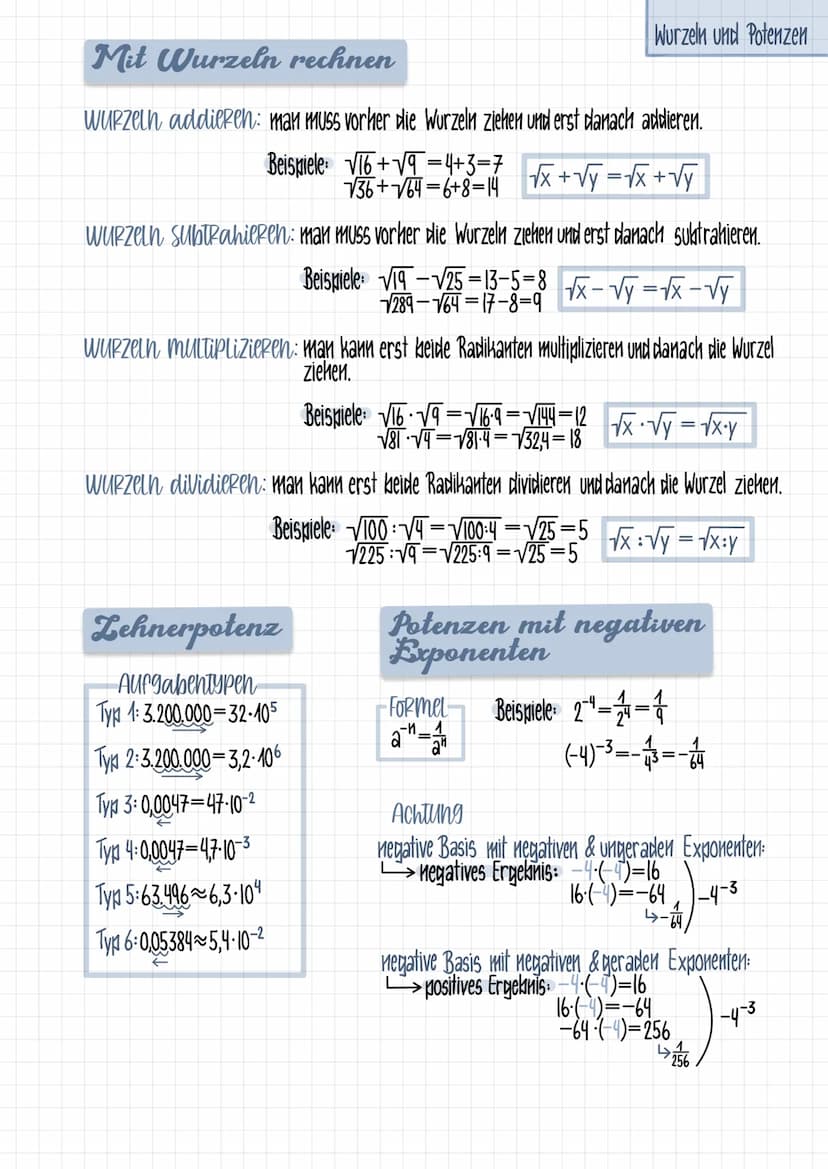 Wurzeln und Potenzen
Mit Wurzeln rechnen
Wurzeln addieren: man muss vorher die Wurzeln ziehen und erst danach addieren.
Beispiele: √16 + √9 = 4+3=7
√36 + √64 = 6+8=14
√x + √y = √x + √y
Wurzeln subtrahieren: man muss vorher die Wurzeln ziehen und erst danach subtrahieren.
Beispiele: √19 − √25 = 13−5=8
√289 − √64 = 17−8=9
√x − √y = √x − √y
Wurzeln multiplizieren: man kann erst beide Radikanten multiplizieren und danach die Wurzel
ziehen.
Beispiele: √16 · √9 = √16·9 = √144 = 12
√81 · √4 = √81·4 = √32,4 = 18
√x · √y = √x·y
Wurzeln dividieren: man kann erst beide Radikanten dividieren und danach die Wurzel ziehen.
Beispiele: √100 : √4 = √100:4 = √25 = 5
√225 : √9 = √225:9 = √25 = 5
√x : √y = √x:y
Zehnerpotenz
Aufgabentypen
Typ 1: 3.200.000 = 32·10⁵
Typ 2: 3.200.000 = 3,2·10⁶
Typ 3: 0,0047 = 47·10⁻²
Typ 4: 0,0047 = 4,7·10⁻³
Typ 5: 63.496 ≈ 6,3·10⁴
Typ 6: 0,05384 ≈ 5,4·10⁻²
Potenzen mit negativen
Exponenten
Formel
a⁻ⁿ = 1/aⁿ
Beispiele: 2⁻⁴ = 1/2⁴ = 1/9
(−4)⁻³ = −1/4³ = −1/64
Achtung
negative Basis mit negativen & ungeraden Exponenten:
↳ negatives Ergebnis: −4·(−4)=16
16·(−4)=−64
↳ −1/64
−4⁻³
negative Basis mit negativen & geraden Exponenten:
↳ positives Ergebnis: −4·(−4)=16
16·(−4)=−64
−64·(−4)=256
↳ 1/256
−4⁻³